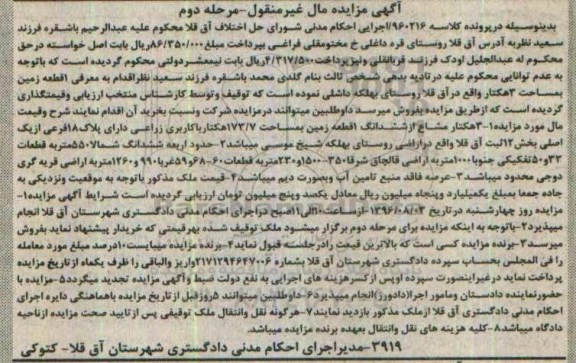 آگهی مزایده مال غیرمنقول-مرحله دوم
بدینوسیله درپرونده کلاسه ۹۶۰۲۱۶/اجرایی احکام مدنی شورای حل اختلاف آق قلا محکوم علیه عبدالرحیم باشقره فرزند
سعید نظربه آدرس آق قلا روستای قره داغلی خ مختومقلی فراغی بپرداخت مبلغ ۸۶/۳۵۰/۰۰۰ریال بابت اصل خواسته درحق
محکوم له عبدالجلیل اودک فرزند قربانقلی ونیزپرداخت۴/۳۱۷/۵۰۰ریال بابت نیمعشردولتی محکوم گردیده است که باتوجه
به عدم توانایی محکوم علیه در تادیه بدهی شخصی ثالث بنام گلدی محمد باشقره فرزند سعید نظراقدام به معرفی ۱قطعه زمین
بمساحت ۳هکتار واقع درآق قلا روستای بهلکه داشلی نموده است که توقیف وتوسط کارشناس منتخب ارزیابی وقیمتگذاری
گردیده است که ازطریق مزایده بفروش میرسد داوطلبین میتوانند درمزایده شرکت ونسبت بخرید آن اقدام نمایند شرح وقیمت
مال مورد مزایده۱-۳هکتار مشاع ازششدانگ ۱قطعه زمین بمساحت ۱۷۳/۷هکتارباکاربری زراعی دارای پلاک۱۸فرعی ازیک
اصلی بخش۱۲ثبت آق قلا واقع دراراضی روستای بهلکه شیخ موسی میباشد۲-حدود اربعه ششدانگ شمالا۵۵۰متربه قطعات
۳۲و۵۰تفکیکی جنوبا۱۰۰۰متربه اراضی قالچاق شرقا۳۵۰-۱۵۰۰و۲۳۰متربه قطعات۶۰-۶۸و۵۹غربا۹۹۰و۱۲۶۰متربه اراضی قریه گری
دوجی محدود میباشد۳-عرصه فاقد منبع تامین آب وبصورت دیم میباشد۴-قیمت ملک مذکور باتوجه به موقعیت ونزدیکی به
جاده جمعا بمبلغ یکمیلیارد وپنجاه میلیون ریال معادل یکصد وپنج میلیون تومان ارزیابی گردیده است شرایط آگهی مزایده۱-
مزایده روز چهارشنبه درتاریخ ۱۳۹۶/۰۸/۰۳ ازساعت۱۰الی۱۱صبح دراجرای احکام مدنی دادگستری شهرستان آق قلا انجام
میپذیرد۲-باتوجه به اینکه مزایده برای مرحله دوم برگزار میشود ملک توقیف شده بهرقیمتی که خریدار پیشنهاد نماید بفروش
میرسد۳-برنده مزایده کسی است که بالاترین قیمت رادرجلسه قبول نماید۴-برنده مزایده میبایست۱۰درصد مبلغ مورد معامله
را فی المجلس بحساب سپرده دادگستری شهرستان آق قلا بشماره ۲۱۷۱۲۹۴۶۴۷۰۰۶واریز والباقی را ظرف یکماه ازتاریخ مزایده
پرداخت نماید درغیراینصورت سپرده اوپس ازکسرهزینه های اجرایی به نفع دولت ضبط وآگهی مزایده تجدید میگردد۵-مزایده با
حضورنماینده دادستان ومامور اجرا(دادورز)انجام میپذیرد۶-داوطلبین میتوانند ۵روزقبل ازتاریخ مزایده باهماهنگی دایره اجرای
احکام مدنی دادگستری آق قلا ازملک مذکور بازدید نمایند۷-هرگونه نقل وانتقال ملک توقیفی پس ازتایید صحت مزایده ازناحیه
دادگاه میباشد۸-کلیه هزینه های نقل وانتقال بعهده برنده مزایده میباشد.
۳۹۱۹-مدیراجرای احکام مدنی دادگستری شهرستان آق قلا- کتوکی